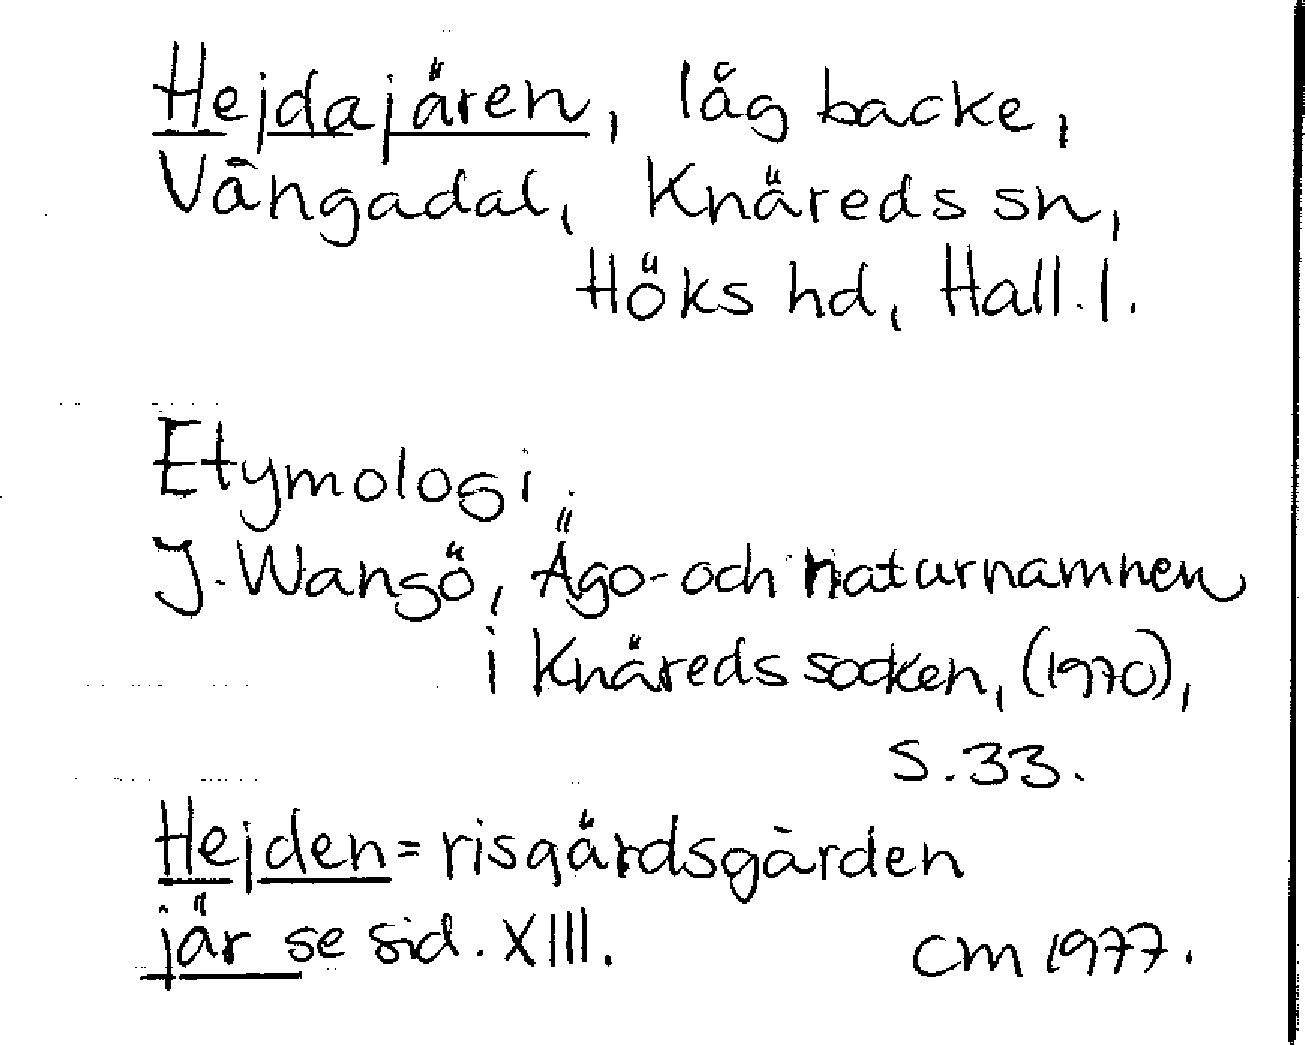 Hejdajären, låg backe,
Vängadal, Knäreds sn,
Höks hd, Hall. l.
Etymologi.
J. Wangö, Ägo- och naturnamnen
i Knäreds socken, (1970),
s. 33.
Hejden = risgärdsgården
jär se sid. XIII.
CM 1977.